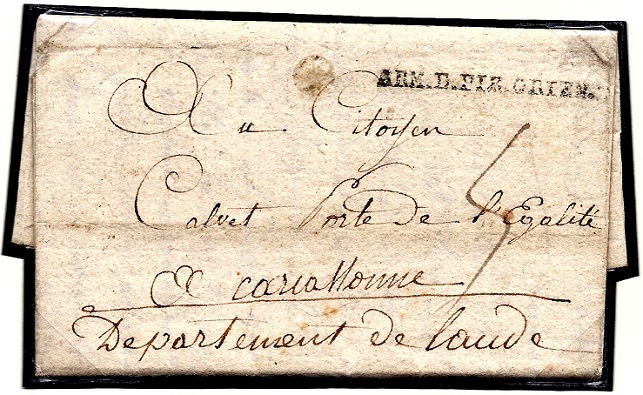 ARM.D.PIR.ORIEN.
Au Citoyen
Calvet Porte de l'Egalité
A carcassonne
Departement de laude